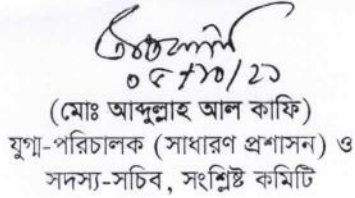 (মোঃ আব্দুল্লাহ আল কাফি)
যুগ্ম-পরিচালক (সাধারণ প্রশাসন) ও
সদস্য-সচিব, সংশ্লিষ্ট কমিটি